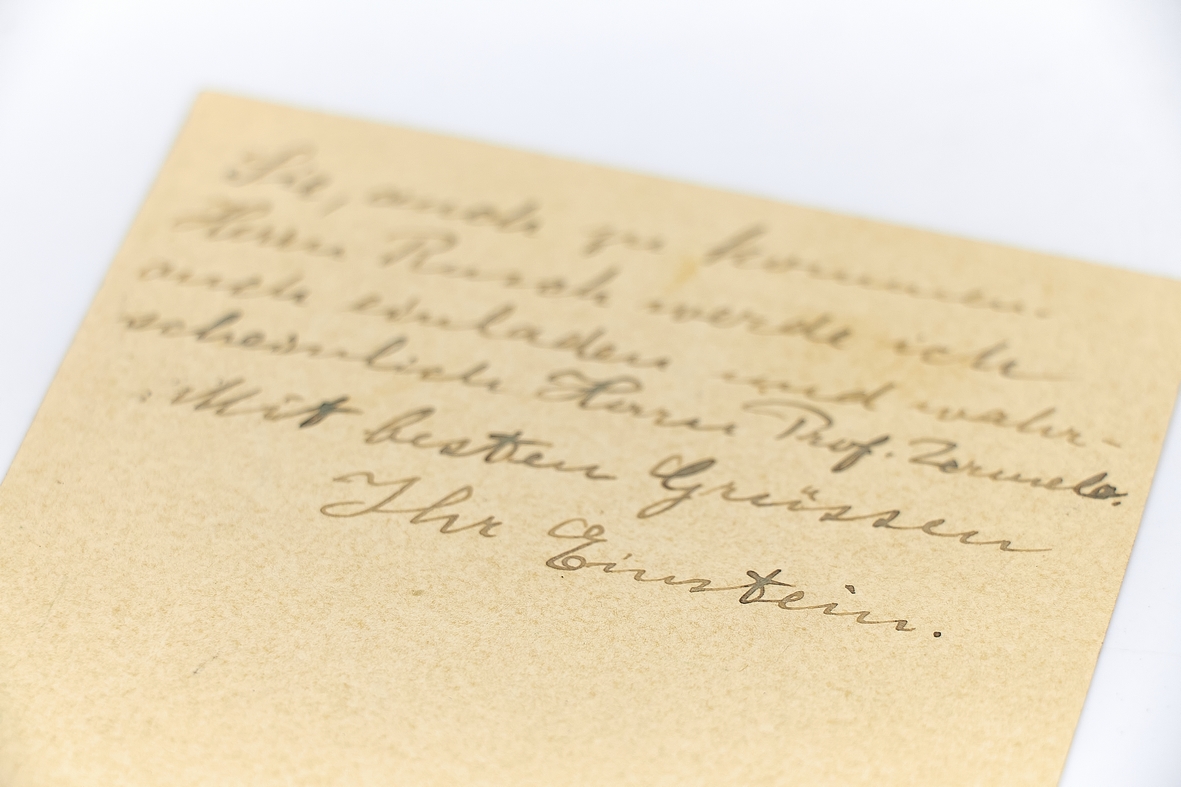 Sie, auch zu kommen.
Herrn Rusch werde ich
auch einladen und wahr-
scheinlich Herrn Prof. Zermelo.
Mit besten Grüssen
Ihr Einstein.